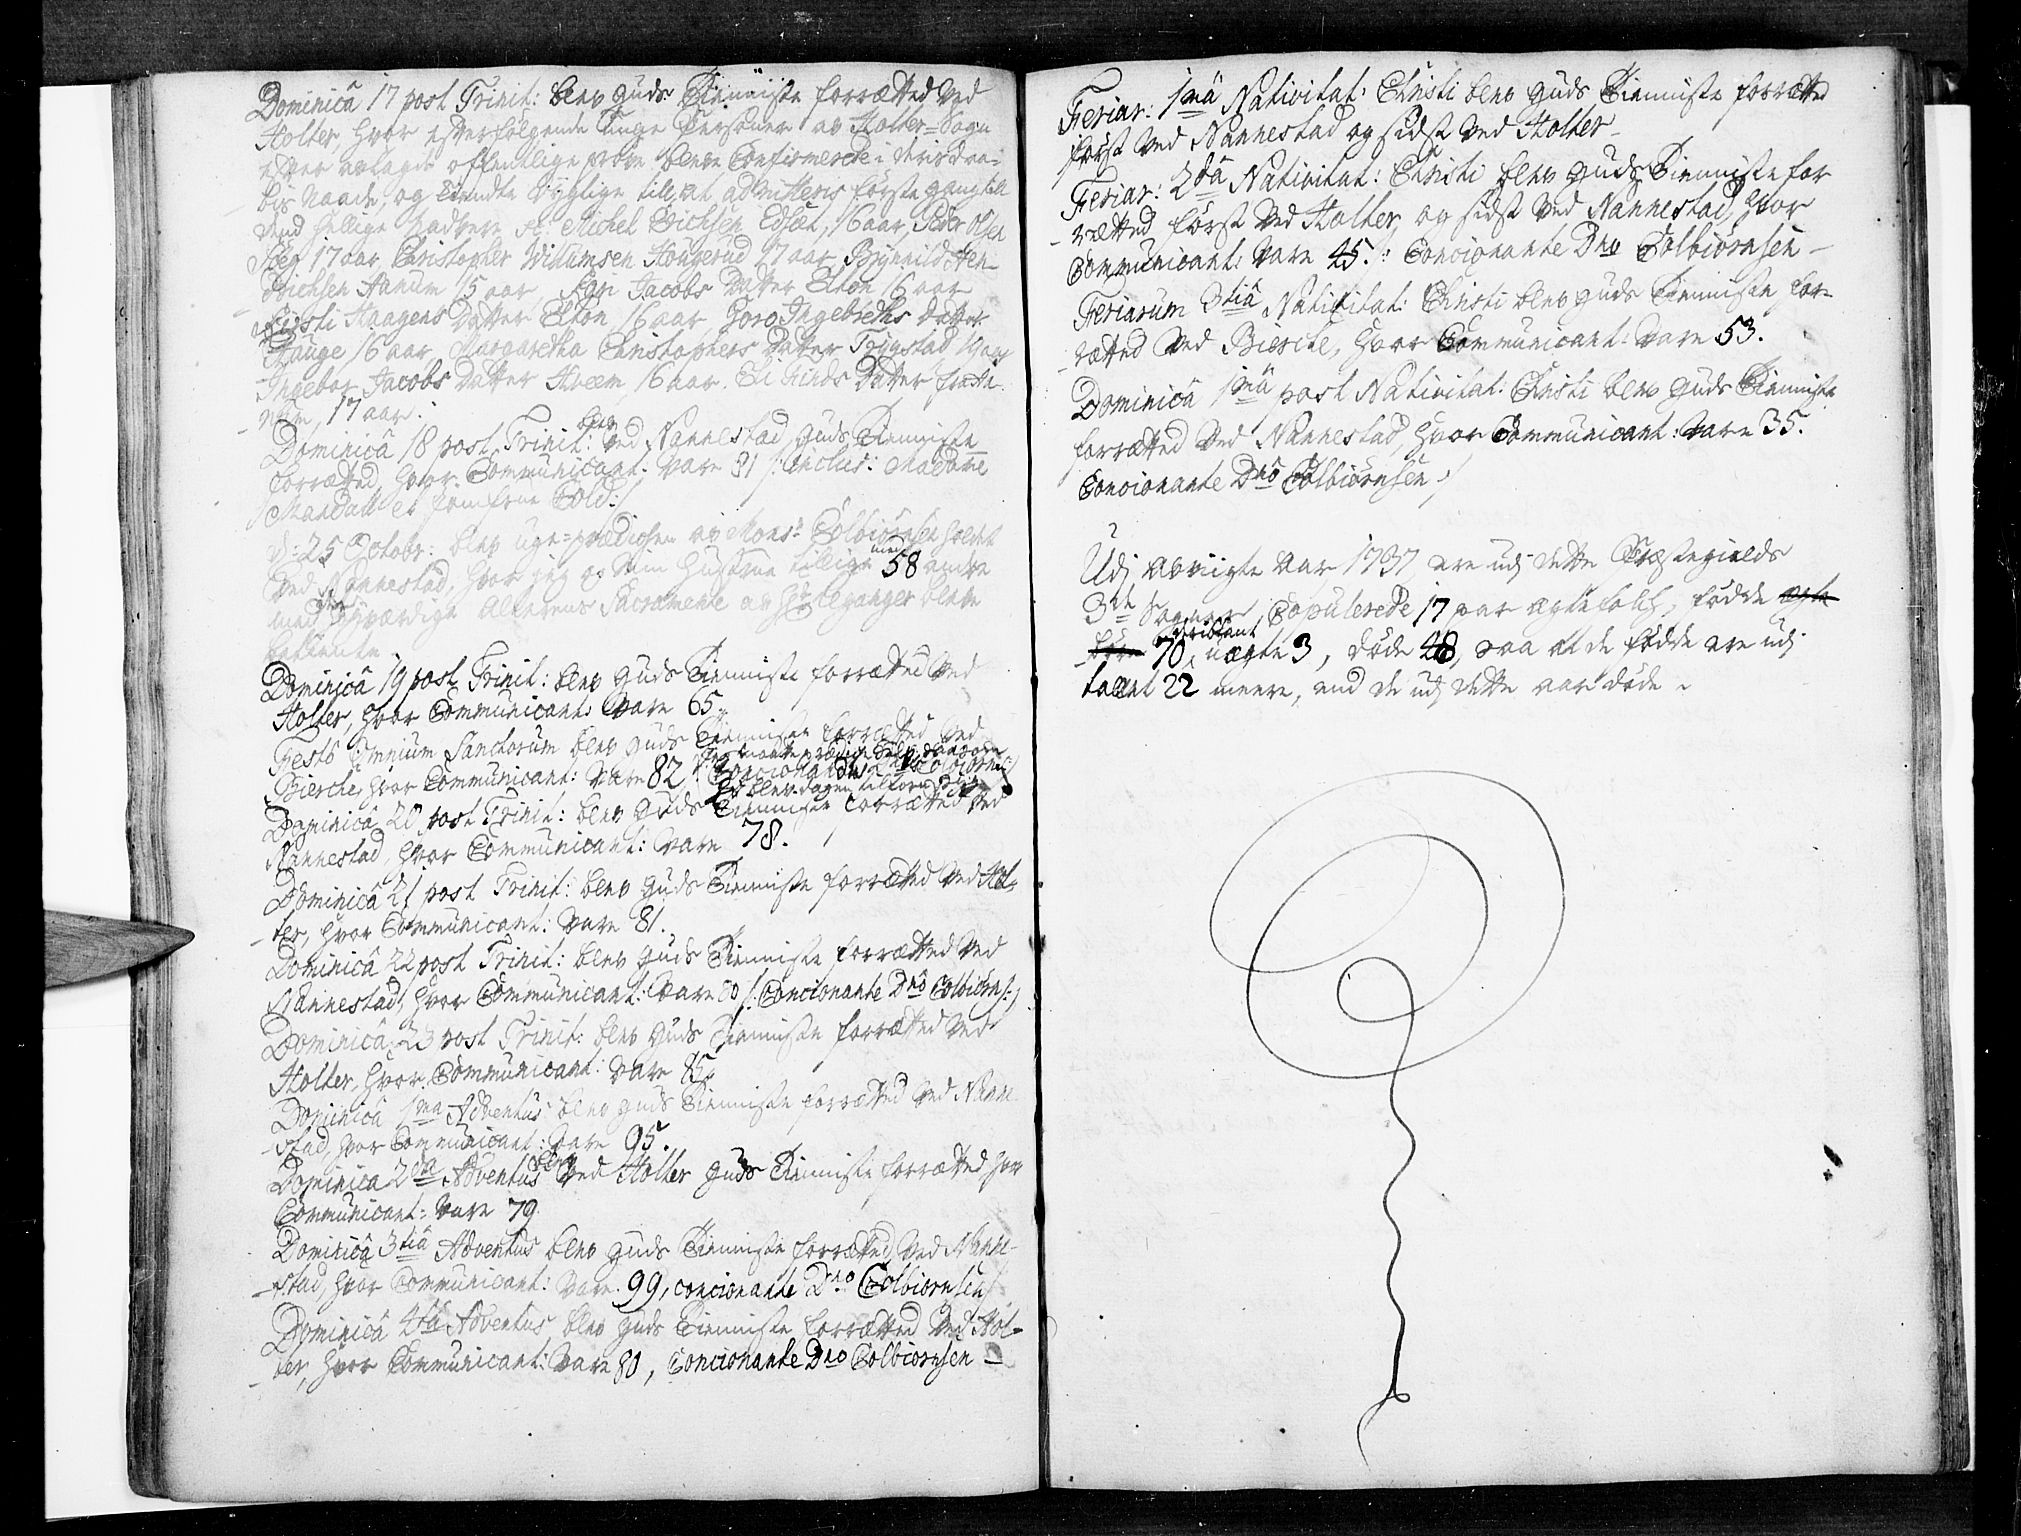 Dominicâ 17 post Trinit: blev Guds Tienniste forrætted ved
Holter, hvor efterfølgende unge Personer av Holter-Sogn
efter aflagde offentlige prøve bleve Confirmerede i deris daa-
bis Naade, og kiendte dygtige till at admitteris første gang till
dend hellige Nadvere. Michel Erichsen 16 aar, Peder Olsen
17 aar, Christopher Willumsen Hougerud 17 aar, Brynnild Hen-
drichsen Aanum 15 aar, Kari Jacobs Datter Elton 16 aar
Kirsti Haagens Datter Elton 16 aar Goro Ingebreths Datter
Hauge 16 aar, Margaretha Christophers Datter Trygstad
Ingebor Jacobs Datter 16 aar. Datter
17 aar.
Dominicâ 18 post Trinit: blev ved Nannestad Guds Tienniste
forrætted, hvor Communicant: vare 81 /: inclus: Madame
Mandall et Jomfrue Cold:/
d: 25 Octobr: blev uge-prædichen av Mons: Colbiørnsen holdet
ved Nannestad, hvor jeg og min Hustrue tillige med 58 andre
med det høyværdige Alterens Sacramente av Hr bleve
betiente.
Dominicâ 19 post Trinit: blev Guds Tienniste forrætted ved
Holter, hvor Communicant: vare 65.
Festo Omnium Sanctorum blev Guds Tienniste forrætted ved
Bierche, hvor Communicant: vare 82
Dominicâ 20 post Trinit: blev Guds Tienniste forrætted ved
Nannestad, hvor Communicant: vare 78.
Dominicâ 21 post Trinit: blev Guds Tienniste forrætted ved Hol-
ter, hvor Communicant: vare 81.
Dominicâ 22 post Trinit: blev Guds Tienniste forrætted ved
Nannestad, hvor Communicant: vare 80 /: Concionante Dno Colbiørns:/
Dominicâ 23 post Trinit: blev Guds Tienniste forrætted ved
Holter, hvor Communicant: vare 85.
Dominicâ 1ma Adventus blev Guds Tienniste forrætted ved Nanne-
stad, hvor Communicant: vare 95.
Dominica 2da Adventus blev ved Holter Guds Tienniste forrætted hvor
Communicant: vare 79.
Dominicâ 3tiâ Adventus blev Guds Tienniste forrætted ved Nanne-
stad, hvor Communicant: vare 99, concionante Dno Colbiørnsen
Dominicâ 4tâ Adventus blev Guds Tienniste forrætted ved Hol-
ter, hvor Communicant: vare 80, Concionante Dno Colbiørnsen
Feriar: 1mâ Nativitat: Christi blev Guds Tienniste forrætted
først ved Nannestad og sidst ved Holter
Feriar: 2dâ Nativitat: Christi blev Guds Tienniste for
rætted først ved Holter, og sidst ved Nannestad, hvor
Communicant: vare 45. Concionante Dno Colbiørnsen
Feriarum 3tiâ Nativitat: Christi blev Guds Tienniste for-
rætted ved Bierche, hvor Communicant: vare 53.
Dominicâ 1mâ post Nativitat: Christi blev Guds Tienniste
forrætted ved Nannestad, hvor Communicant: vare 35.
Concionante Dno Colbiørnsen
Udj Aviigte Aar 1737 ere udj dette Præstegields
3de Sogner Copulerede 17 par ægtefolch, fødde
70, uægte 3, døde 48, saa at de fødde ere udj
tallet 22 meere, end de udj dette aar døde